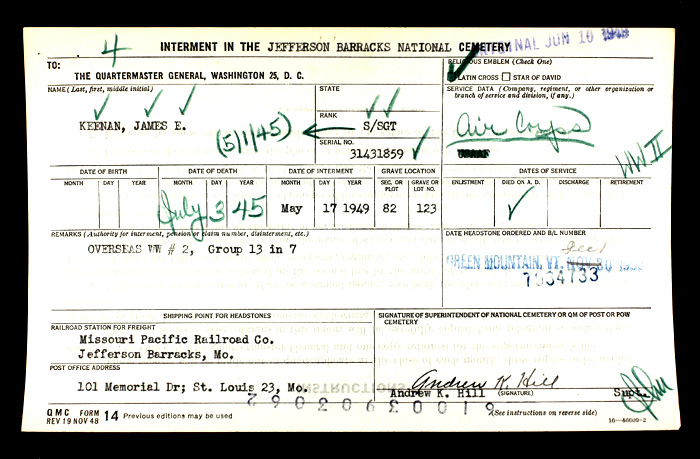 4
INTERMENT IN THE JEFFERSON BARRACKS NATIONAL CEMETERY
JUN 10
TO:
THE QUARTERMASTER GENERAL, WASHINGTON 25, D. C.
RELIGIOUS EMBLEM (Check One)
LATIN CROSS STAR OF DAVID
NAME (Last, first, middle initial)
KEENAN, JAMES E.
(5/1/45)
STATE
RANK
S/SGT
SERIAL NO.
31431859
SERVICE DATA (Company, regiment, or other organization or branch of service and division, if any.)
Air Corps
USAAF
WW II
DATE OF BIRTH
DATE OF DEATH
DATE OF INTERMENT
GRAVE LOCATION
DATES OF SERVICE
MONTH DAY YEAR MONTH DAY YEAR MONTH DAY YEAR SEC. OR PLOT GRAVE OR LOT NO. ENLISTMENT DIED ON A. D. DISCHARGE RETIREMENT
July 3 45 May 17 1949 82 123
REMARKS (Authority for interment, pension or claim number, disinterment, etc.)
OVERSEAS WW # 2, Group 13 in 7
DATE HEADSTONE ORDERED AND B/L NUMBER
GREEN MOUNTAIN, VT. NOV 30
7334733
SHIPPING POINT FOR HEADSTONES
RAILROAD STATION FOR FREIGHT
Missouri Pacific Railroad Co.
Jefferson Barracks, Mo.
POST OFFICE ADDRESS
101 Memorial Dr; St. Louis 23, Mo.
SIGNATURE OF SUPERINTENDENT OF NATIONAL CEMETERY OR QM OF POST OR POW CEMETERY
Andrew K. Hill
Andrew K. Hill (SIGNATURE) Supt.
QMC FORM REV 19 NOV 48 14 Previous editions may be used
(See instructions on reverse side)